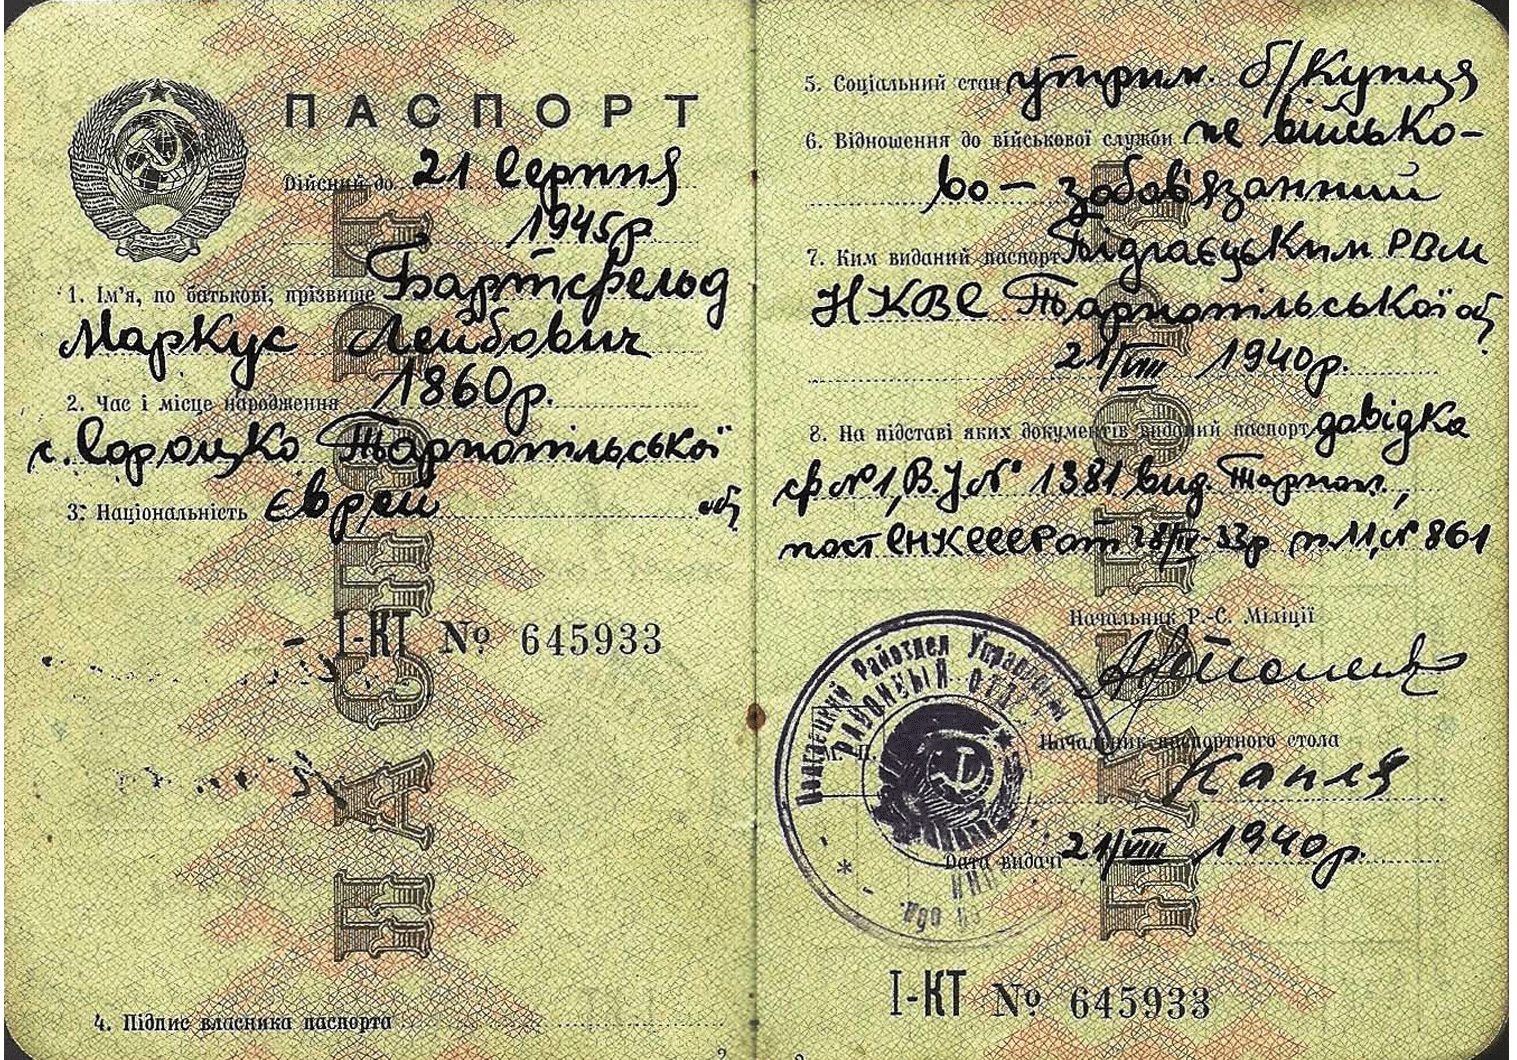 ПАСПОРТ
Дійсний до 21 серпня
1945р.
1. Ім'я, по батькові, прізвище Бартфельд
Маркус Лейбович
2. Час і місце народження 1860р.
с. Сороцко Тарнопільської
3. Національність єврей обл
I-КТ № 645933
4. Підпис власника паспорта
5. Соціальний стан утрим. б/купця
6. Відношення до військової служби не військо-
во-зобов'язанний
7. Ким виданий паспорт Підгаєцьким РВМ
НКВС Тарнопільської обл
21/VIII 1940р.
8. На підставі яких документів виданий паспорт довідка
ф №1, В.У № 1381 вид. Тарноп.,
пост СНК СССР от 28/IV-33р п.11, № 861
Начальник Р.-С. Міліції
Подгаецкий Райотдел Управления
РАЙОННЫЙ ОТД
М. П.
Начальник паспортного стола
Капля
Дата видачі 21/VIII 1940р.
I-КТ № 645933
ПАСПОРТ
ПАСПОРТ